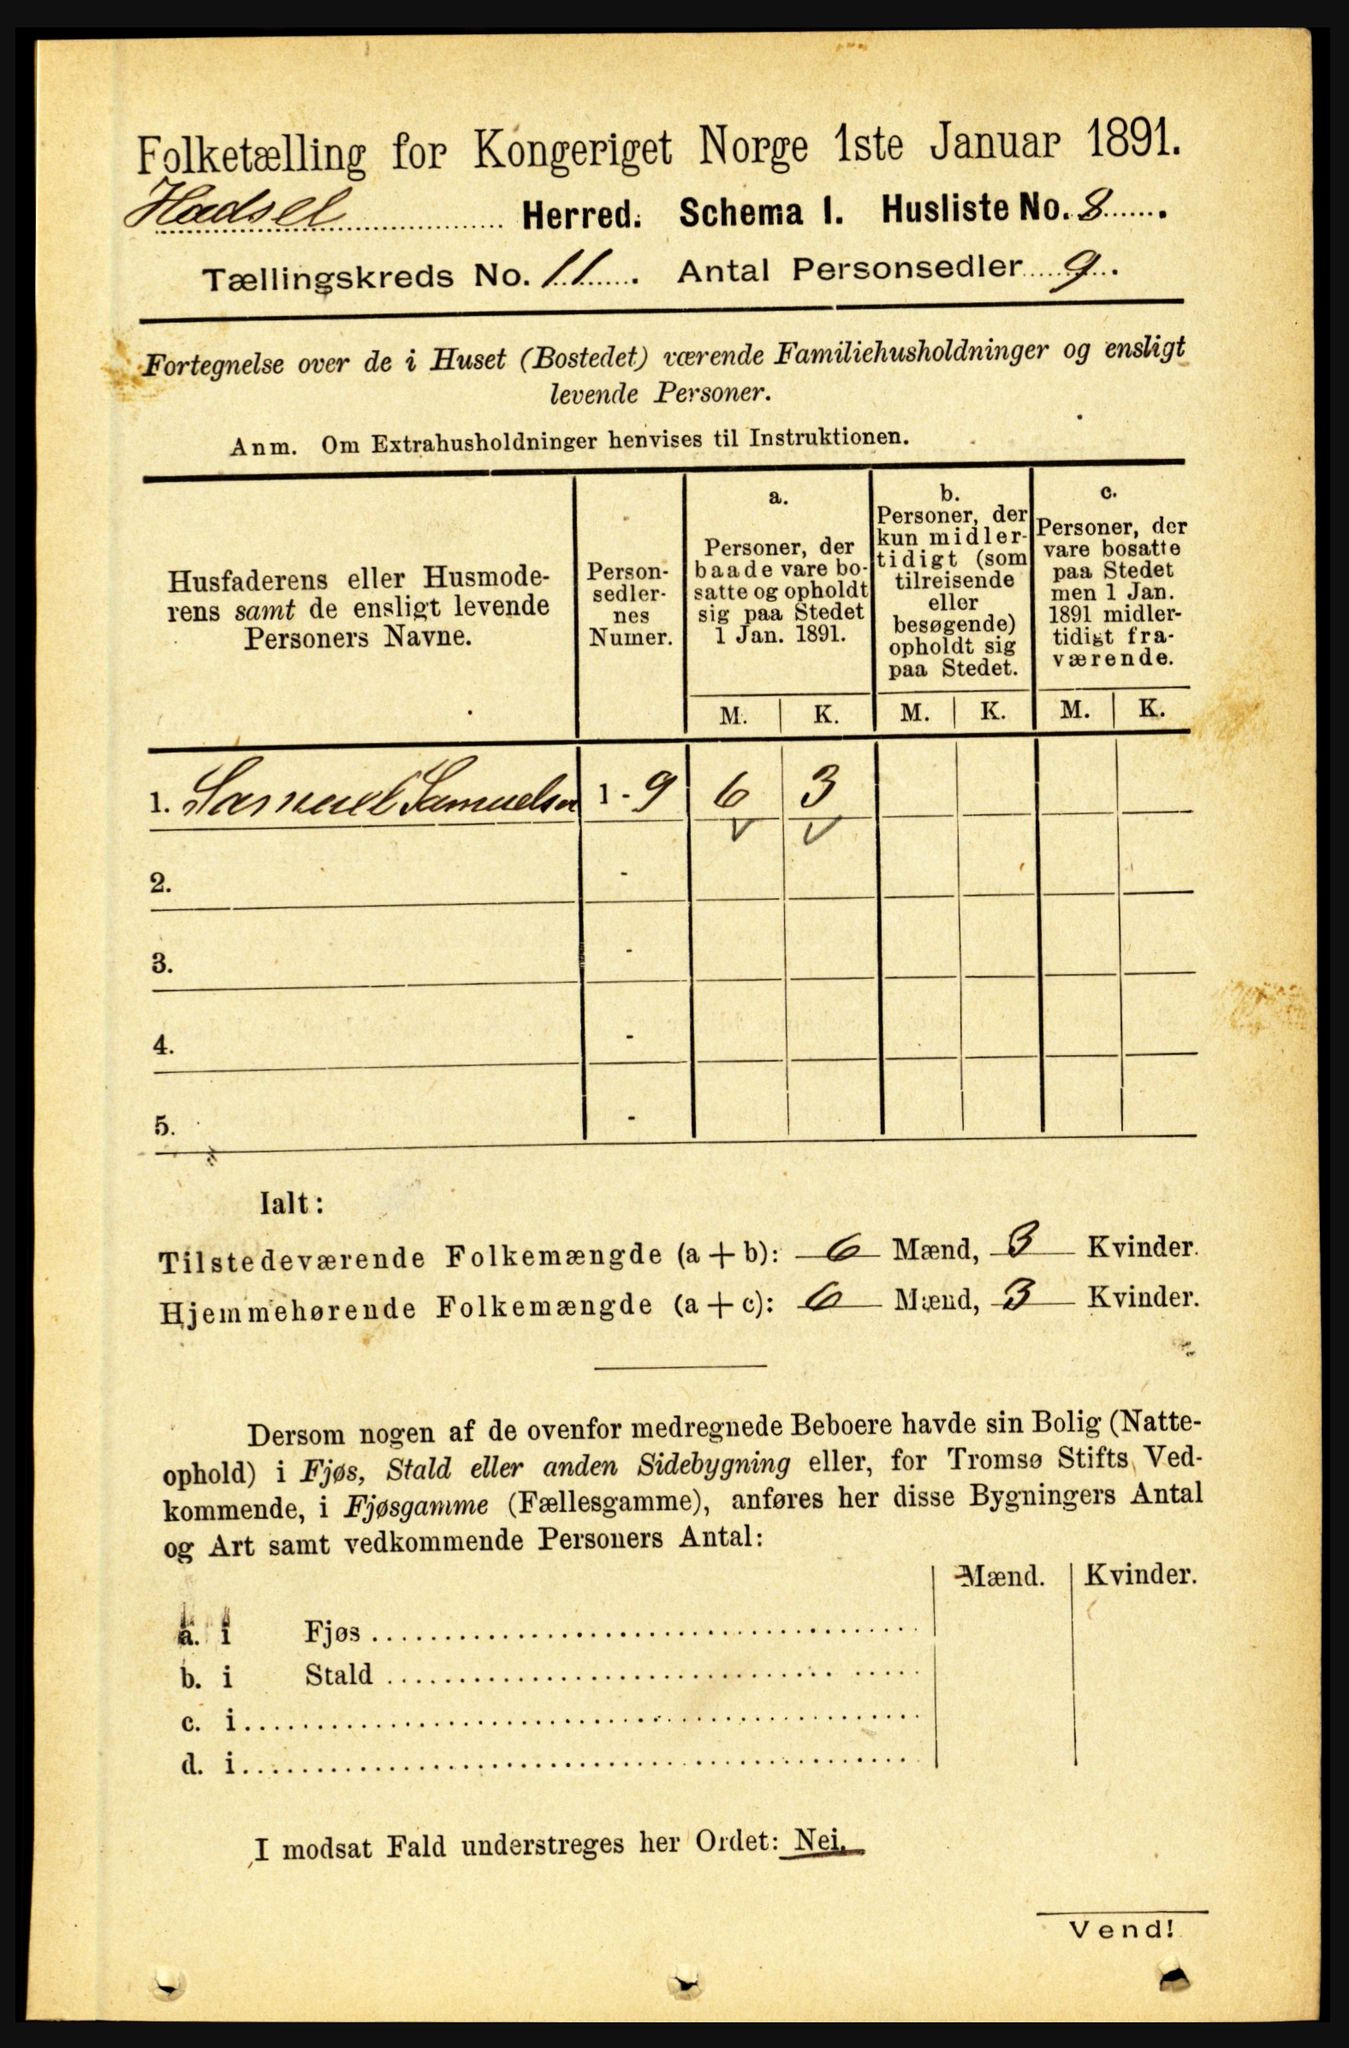 Folketælling for Kongeriget Norge 1ste Januar 1891.
Hadsel Herred. Schema I. Husliste No. 8.
Tællingskreds No. 11. Antal Personsedler 9.
Fortegnelse over de i Huset (Bostedet) værende Familiehusholdninger og ensligt
levende Personer.
Anm. Om Extrahusholdninger henvises til Instruktionen.
Husfaderens eller Husmode-
rens samt de ensligt levende
Personers Navne.
Person-
sedler-
nes
Numer.
a.
Personer, der
baade vare bo-
satte og opholdt
sig paa Stedet
1 Jan. 1891.
b.
Personer, der
kun midler-
tidigt (som
tilreisende
eller
besøgende)
opholdt sig
paa Stedet.
c.
Personer, der
vare bosatte
paa Stedet
men 1 Jan.
1891 midler-
tidigt fra-
værende.
M. K. M. K. M. K.
1. Samuel Samuelsen 1 - 9 6 3
2. -
3. -
4. -
5. -
Ialt:
Tilstedeværende Folkemængde (a + b): 6 Mænd, 3 Kvinder.
Hjemmehørende Folkemængde (a + c): 6 Mænd, 3 Kvinder.
Dersom nogen af de ovenfor medregnede Beboere havde sin Bolig (Natte-
ophold) i Fjøs, Stald eller anden Sidebygning eller, for Tromsø Stifts Ved-
kommende, i Fjøsgamme (Fællesgamme), anføres her disse Bygningers Antal
og Art samt vedkommende Personers Antal:
Mænd. Kvinder.
a. i Fjøs
b. i Stald
c. i
d. i
I modsat Fald understreges her Ordet: Nei.
Vend!